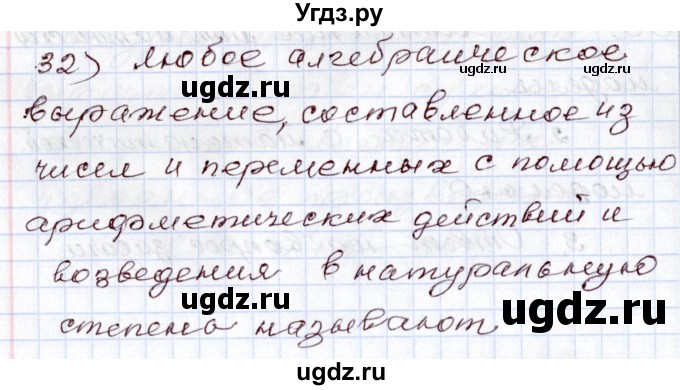 Угдз.ру
32) Любое алгебраическое
выражение, составленное из
чисел и переменных с помощью
арифметических действий и
возведения в натуральную
степень называют
ugdz.ru ugdz.ru
ugdz.ru ugdz.ru
ugdz.ru ugdz.ru
ugdz.ru ugdz.ru
ugdz.ru